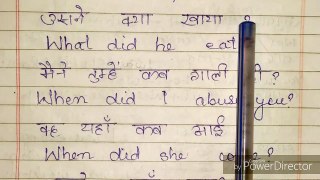 उसने क्या खाया ?
What did he eat
मैंने तुम्हें कब गाली दी?
When did I abuse you?
वह यहाँ कब आई
When did she come?
by PowerDirector